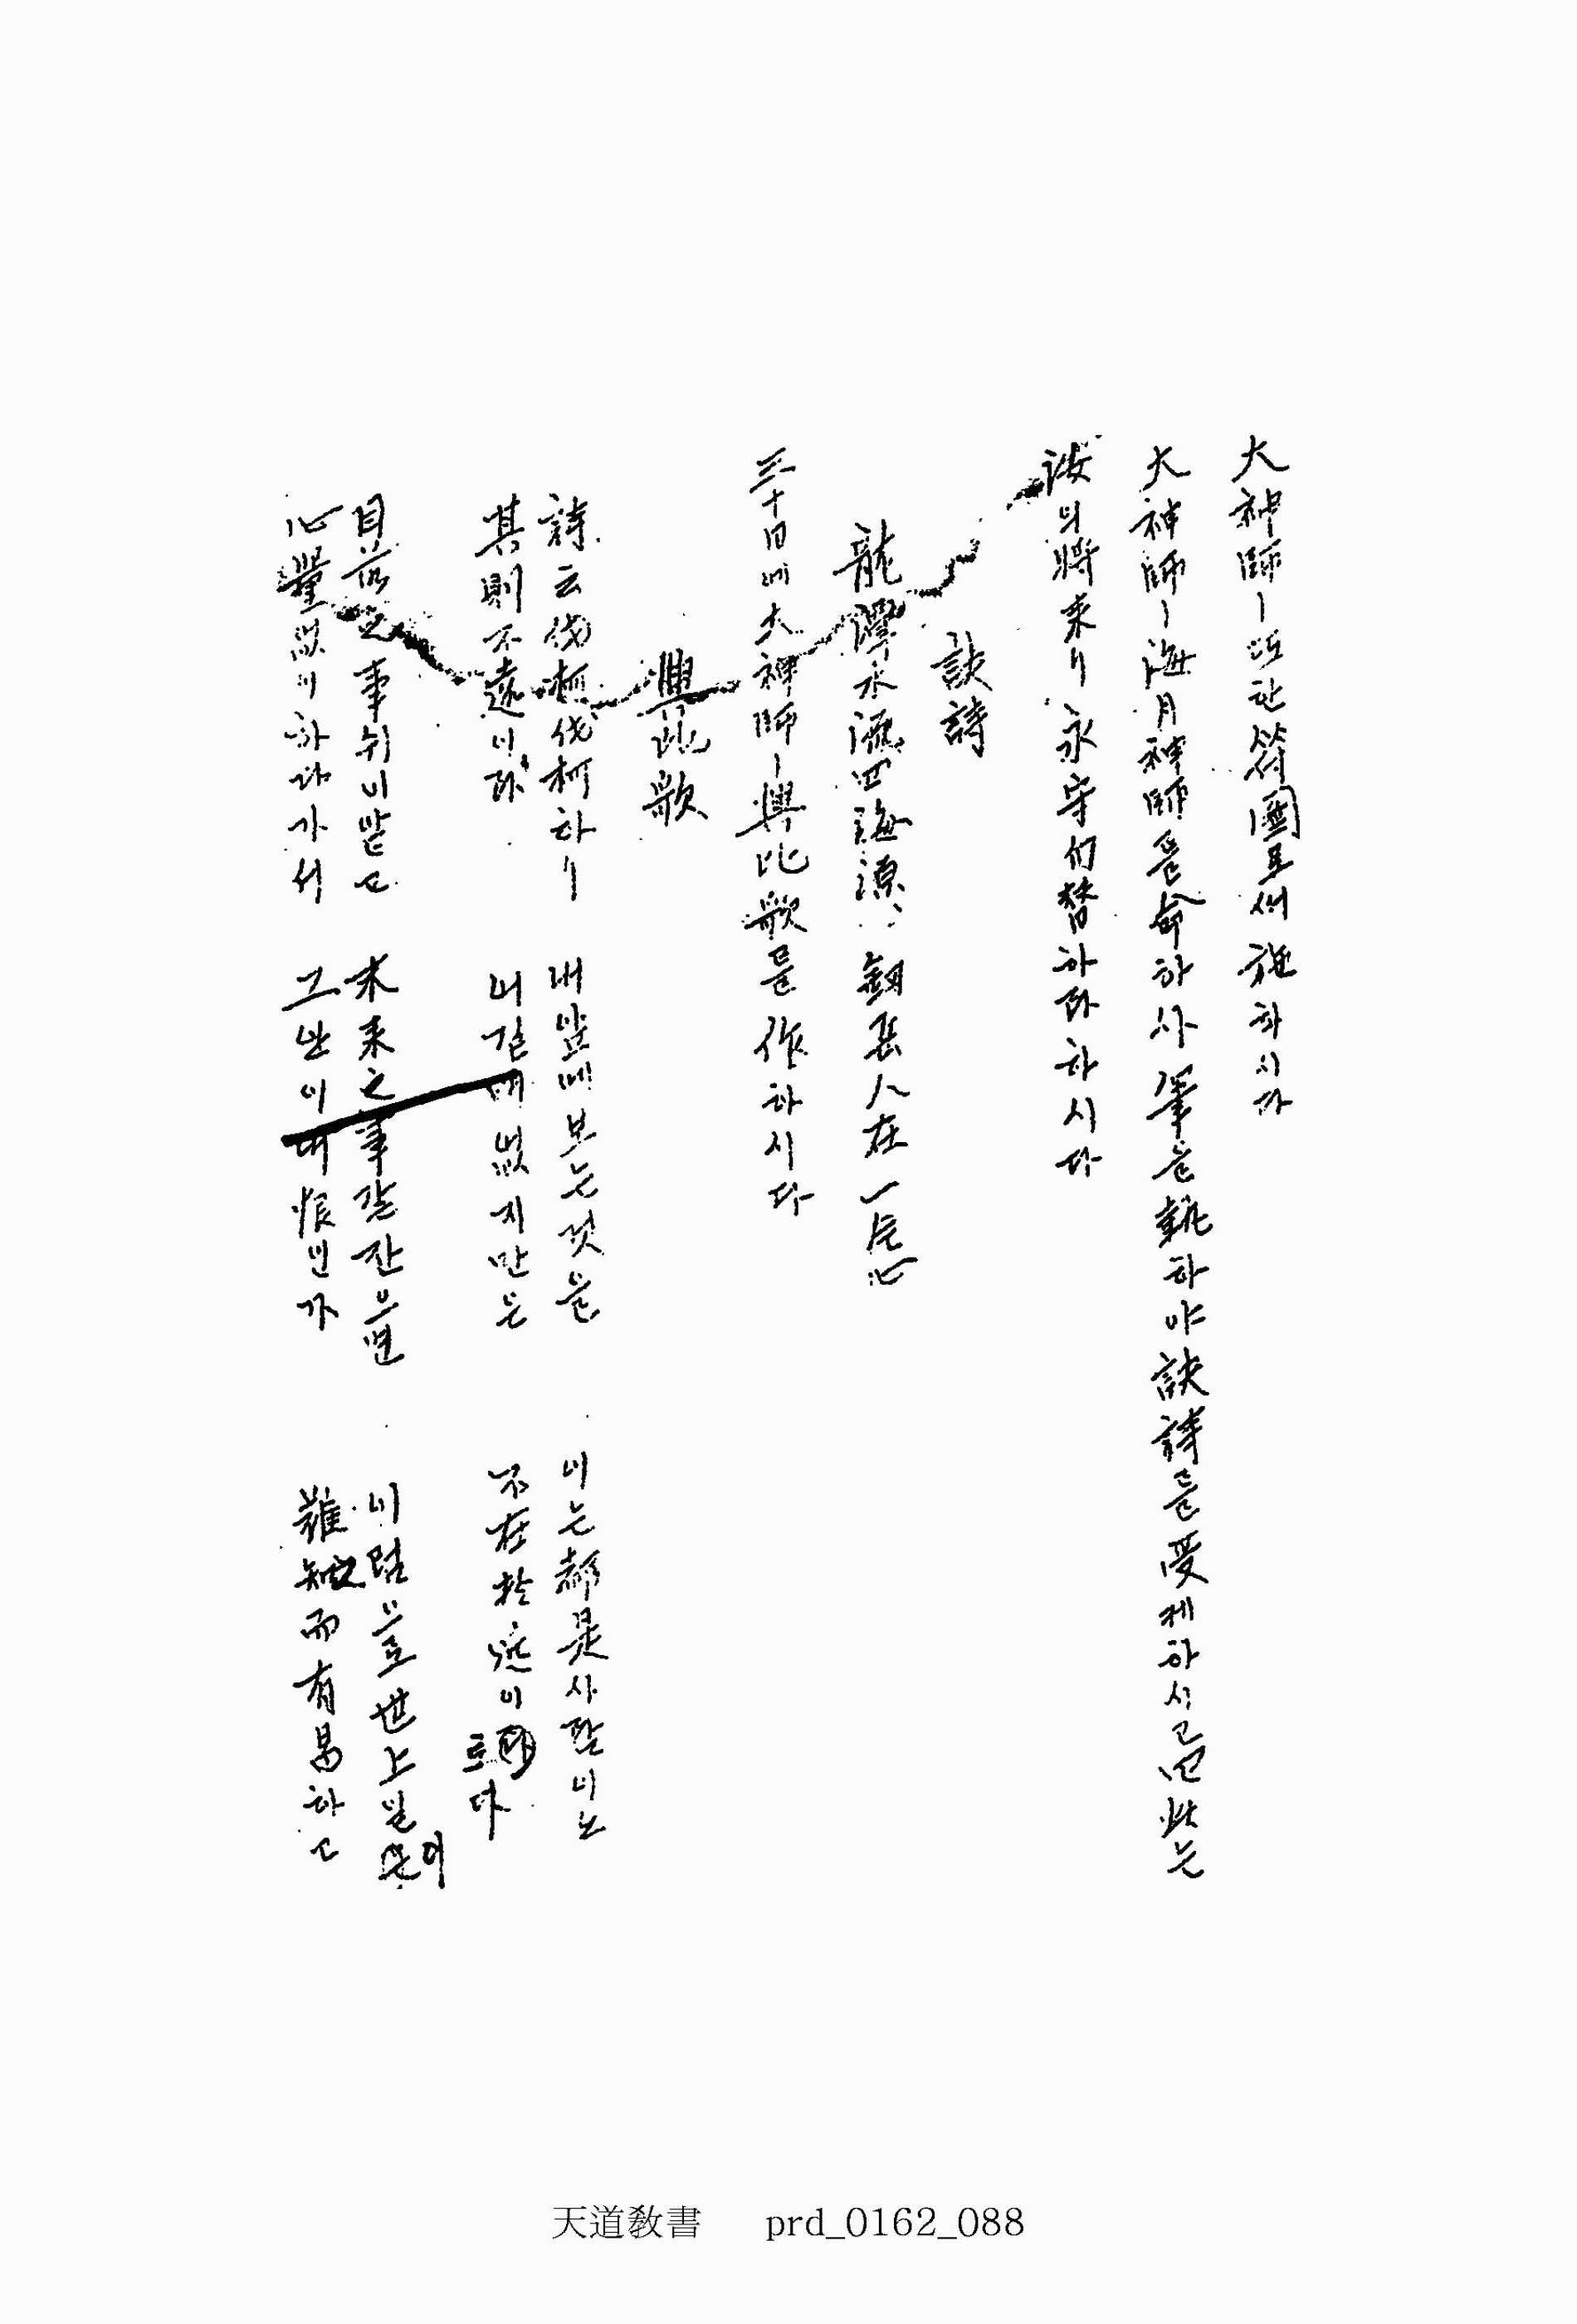 大神師ㅣ또한 符圖로써 施하시다
大神師ㅣ海月神師를 命하사 筆을 執하야 訣詩를 受케하시고 曰 此는
汝의 將來니 永守勿替하라 하시다
訣詩
龍潭水流四海源、 釼岳人在一片心
三十日에 大神師ㅣ興比歌를 作하시다
興比歌
詩云伐柯伐柯하니 내 앞에 보는 것을 이는 都是사람이노
其則不遠이라 이길때 없지만은 不在於遠이로다
目前之事쉬이알고 未來之事같잔으면 이럼으로 世上일이
心量없이하다가서 그 안이 내 恨인가 難知而有易하고
天道敎書 prd_0162_088